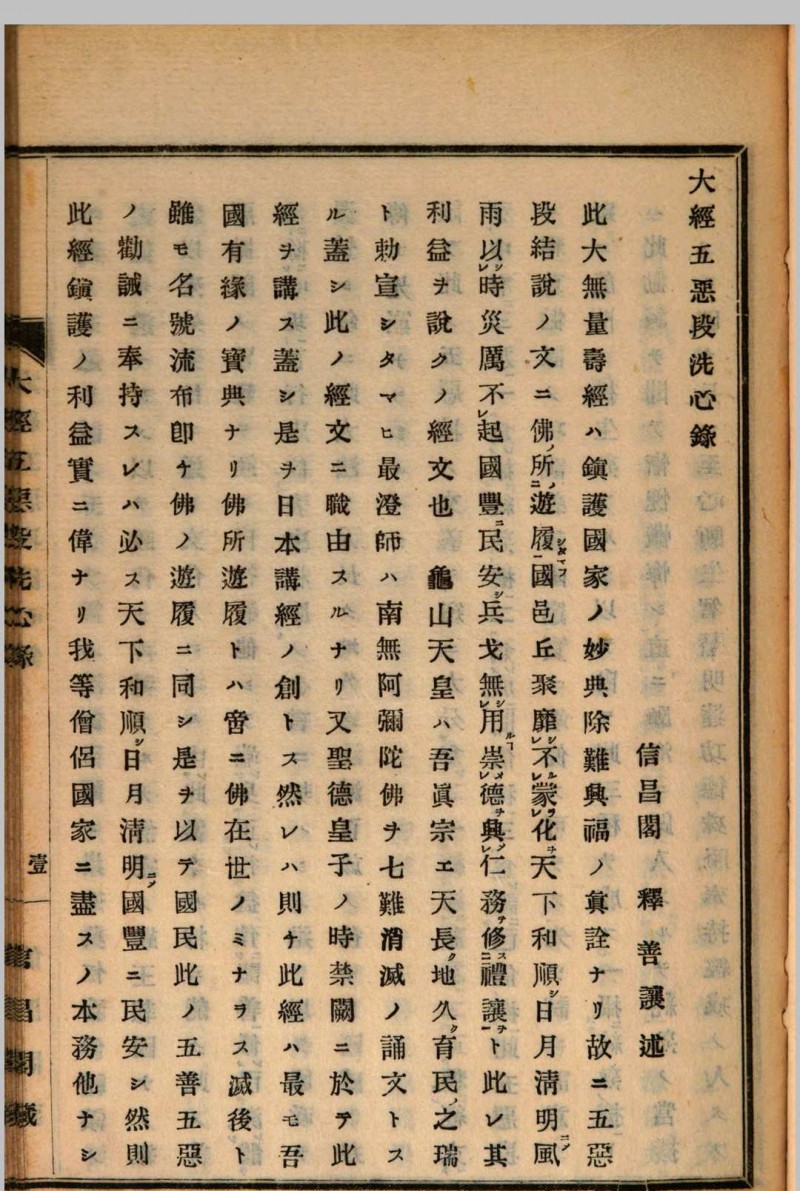 大經五惡段洗心錄
信昌閣　釋　善讓　述
此大無量壽經ハ鎭護國家ノ妙典除難興福ノ眞詮ナリ故ニ五惡
段結說ノ文ニ佛所遊履國邑丘聚靡不蒙化天下和順日月淸明風
雨以時災厲不起國豐民安兵戈無用崇德興仁務修禮讓ト此レ其
利益ヲ說クノ經文也　龜山天皇ハ吾眞宗エ天長地久育民之瑞
ト勅宣シタマヒ最澄師ハ南無阿彌陀佛ヲ七難消滅ノ誦文トス
ル蓋シ此ノ經文ニ職由スルナリ又聖德皇子ノ時禁闕ニ於テ此
經ヲ講ス蓋シ是ヲ日本講經ノ創トス然レハ則チ此經ハ最モ吾
國有緣ノ寶典ナリ佛所遊履トハ啻ニ佛在世ノミナラス滅後ト
雖モ名號流布卽チ佛ノ遊履ニ同シ是ヲ以テ國民此ノ五善五惡
ノ勸誡ニ奉持スレハ必ス天下和順日月淸明國豐ニ民安シ然則
此經鎭護ノ利益實ニ偉ナリ我等僧侶國家ニ盡スノ本務他ナシ
大經五惡段洗心錄
壹
信昌閣藏